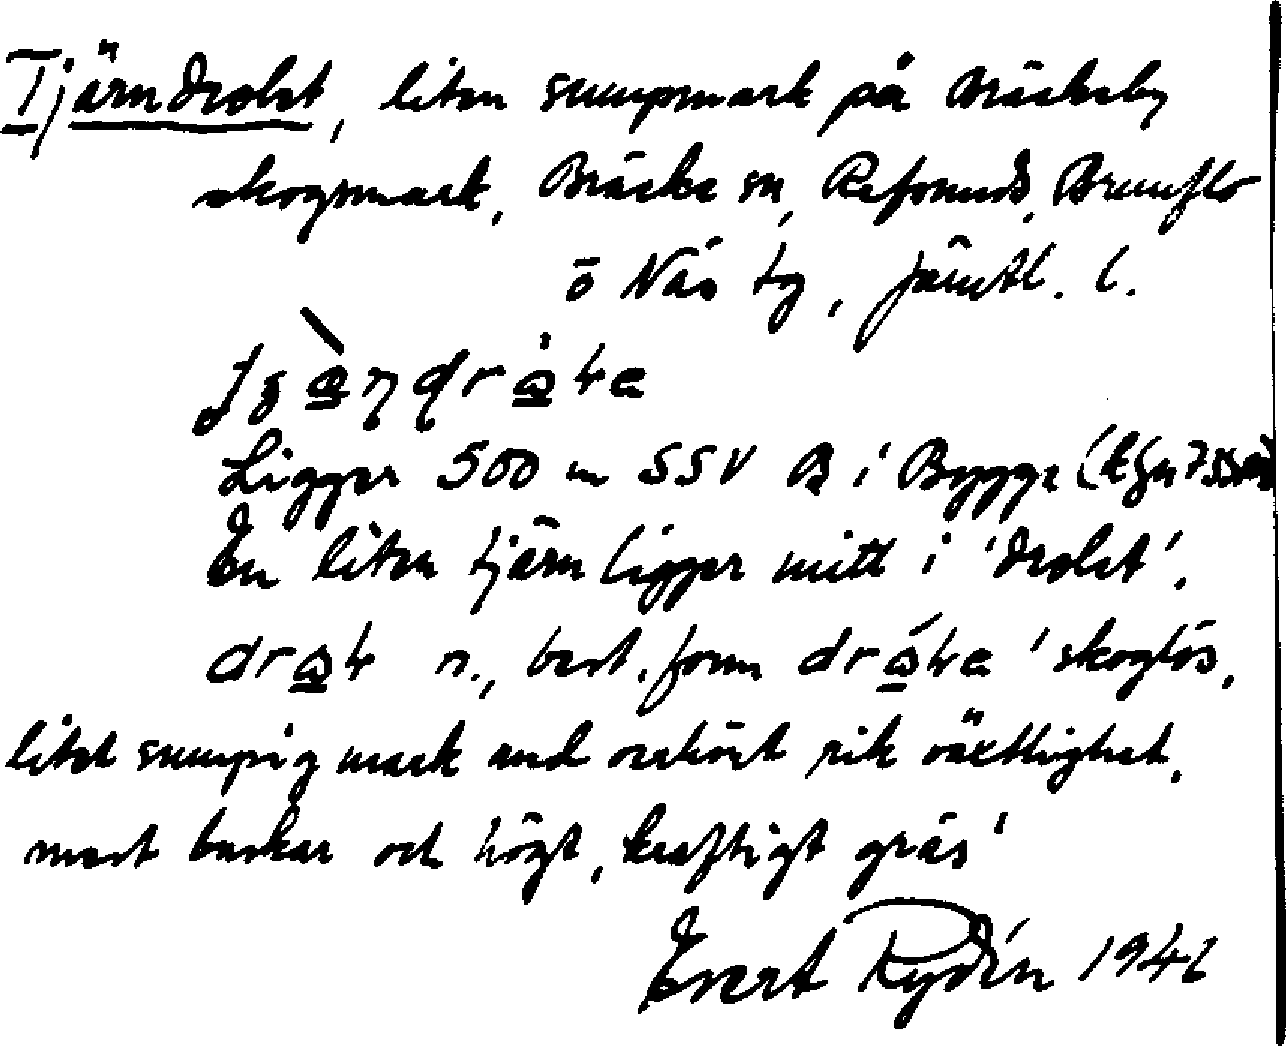 Tjärndroket, liten sumpmark på Bräckeby
skogsmark, Bräcke sn, Refsunds, Brunflo
o Näs tg, Jämtl. l.
Ligger 500 m SSV B i Bygge
En liten tjärn ligger mitt i 'droket'.
n., best. form 'skoglös,
litet sumpig mark med oerhört rik växtlighet,
mest buskar och högt, kraftigt gräs'
Evert Rydén 1941